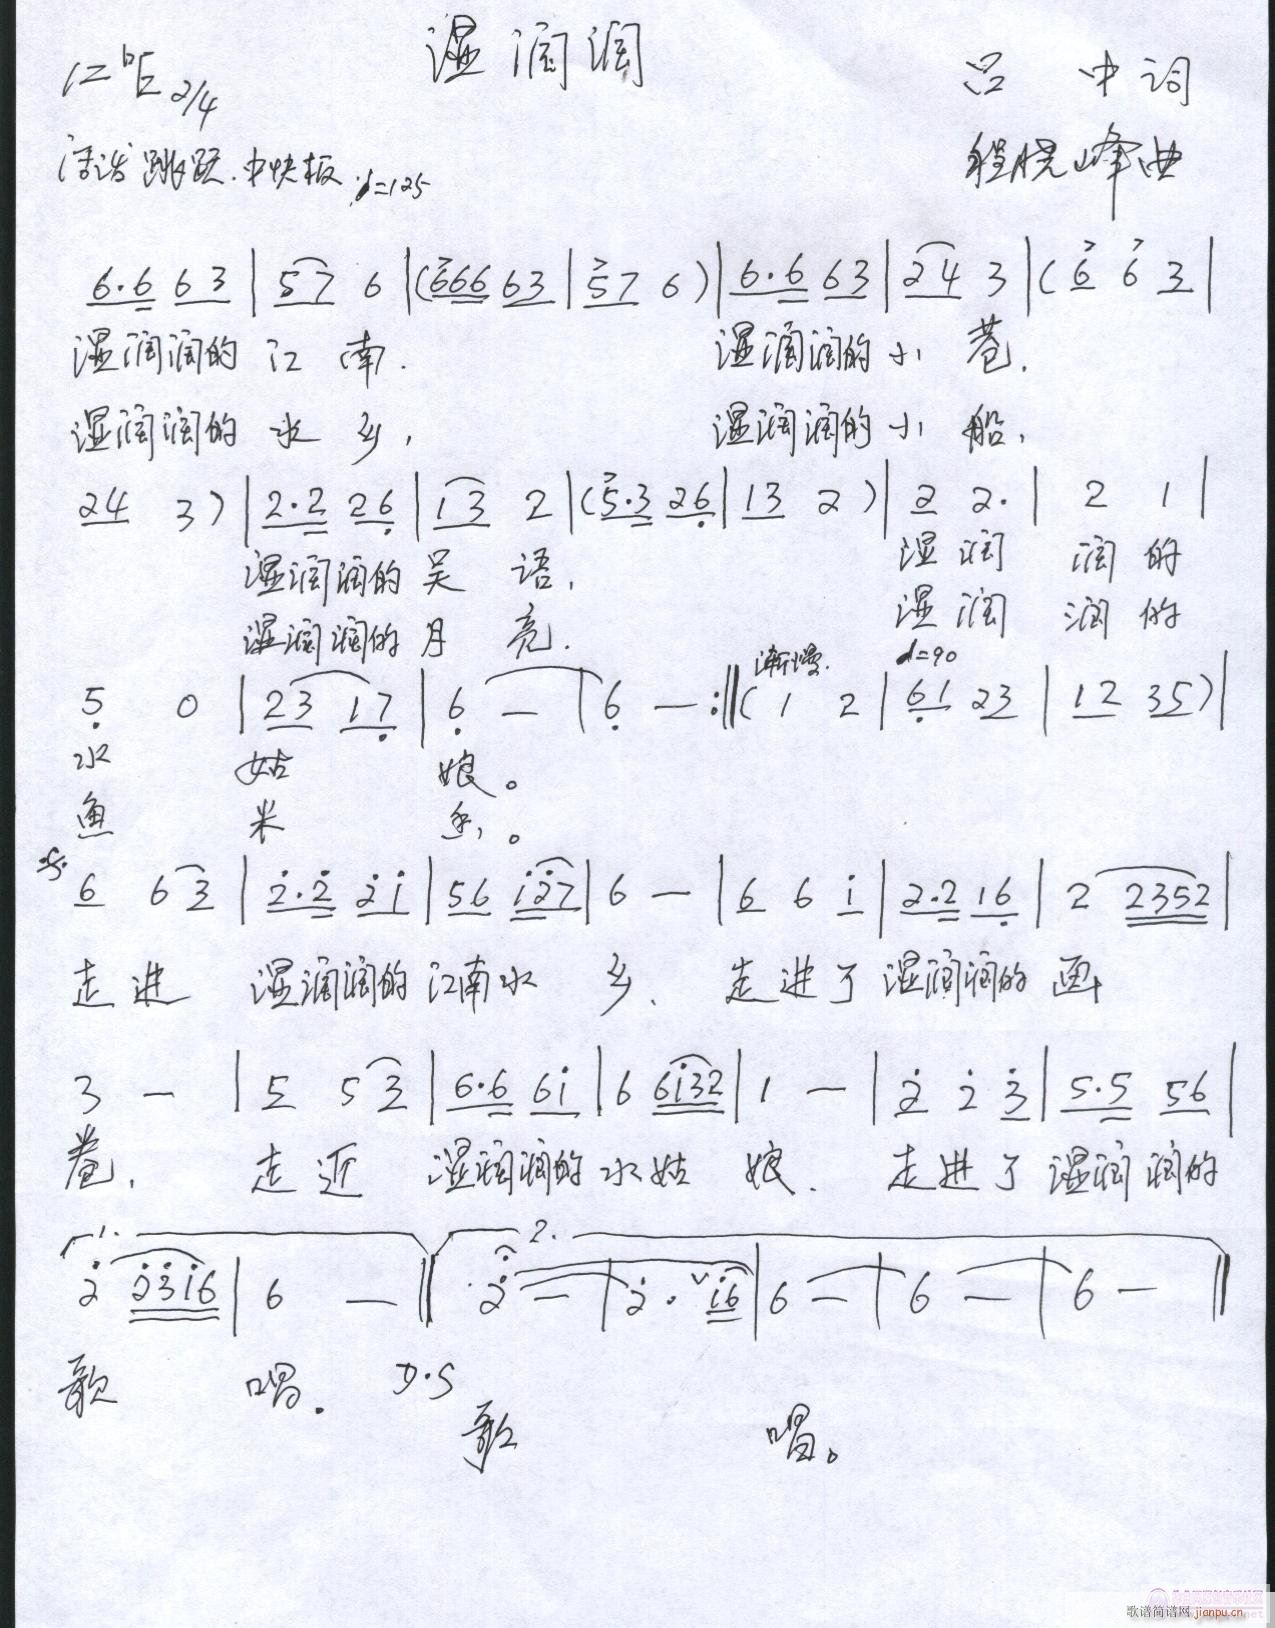 湿润润
1=♭E 2/4
吕 中词
活泼 跳跃.中快板 ♩=125
程晓峰曲
6.6 63 | 57 6 |(666 63 | 57 6 )| 6.6 63 | 24 3 |( 6 6 3 |
湿润润的 江 南. 湿润润的 小 巷.
湿润润的 水 乡, 湿润润的 小 船,
24 3 )| 2.2 26 | 13 2 |(5.3 26 | 13 2 )| 2 2. | 2 1 |
湿润润的 吴 语, 湿 润 润 的
湿润润的 月 亮. 湿 润 润 的
渐慢. ♩=90
5 0 | 23 17 | 6 — | 6 — :‖( 1 2 | 61 23 | 12 35 )|
水 姑 娘。
鱼 米 乡。
6 6 3 | 2.2 21 | 56 127 | 6 — | 6 6 1 | 2.2 16 | 2 2352 |
走 进 湿润润的 江南水 乡. 走 进 了 湿润润的 画
3 — | 5 5 3 | 6.6 61 | 6 6132 | 1 — | 2 2 3 | 5.5 56 |
卷, 走 近 湿润润的 水 姑 娘. 走 进 了 湿润润的
1. 2.
2 2316 | 6 — ‖ 2 — | 2 . ∨ 16 | 6 — | 6 — | 6 — ‖
歌 唱. D.S
歌 唱。
歌谱简谱网 jianpu.cn